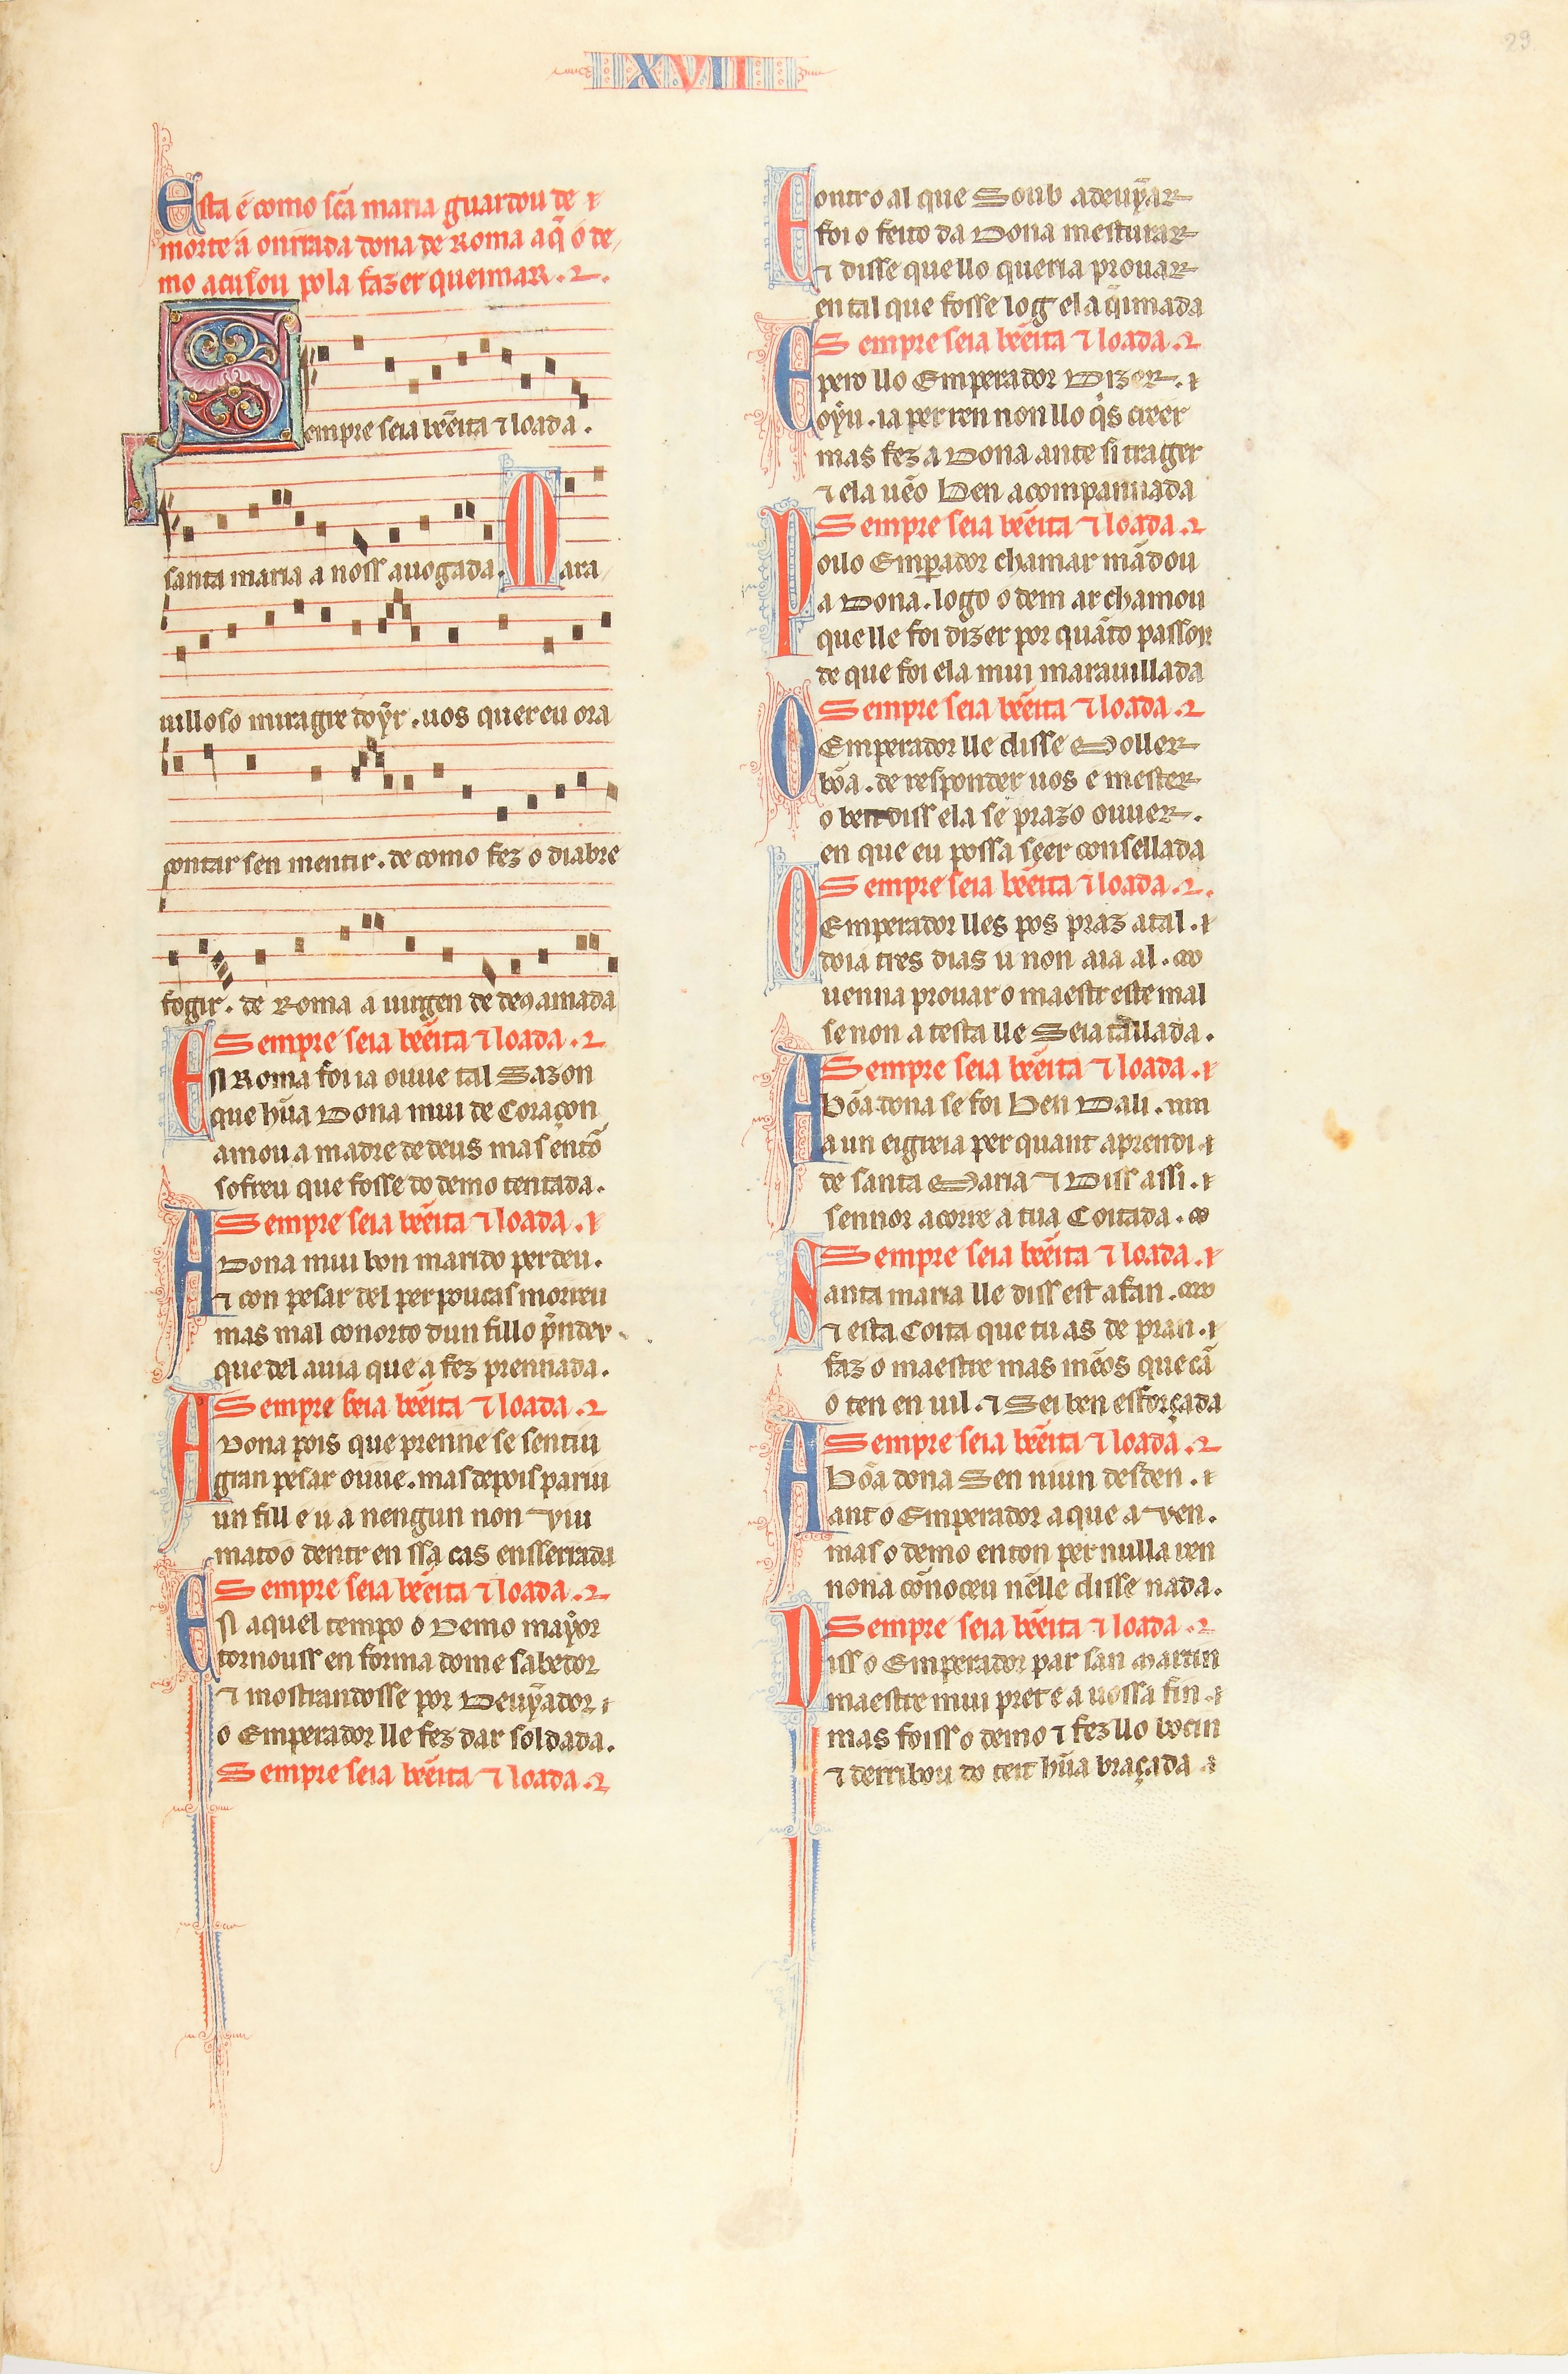 XVII
29
Esta é como sc̃a maria guardou de
morte a onrrada dona de Roma a q̃ o de
mo acusou pola fazer queimar.
Sempre seia bẽeita ⁊ loada.
santa maria a noss auogada. Mara
uilloso miragre doyr. uos quereu ora
contar sen mentir. de como fez o diabre
fogir. de Roma a uirgen de deus amada
Sempre seia bẽeita ⁊ loada.
En Roma foi ia ouue tal Sazon
que hũa Dona mui de Coraçon
amou a madre de deus mas entõ
sofreu que fosse do demo tentada.
Sempre seia bẽeita ⁊ loada.
A Dona mui bon marido perdeu.
⁊ con pesar del per poucas morreu
mas mal conorto dun fillo p̃nder
que del auia que a fez prennada.
Sempre beia bẽeita ⁊ loada.
A Dona pois que prenne se sentiu
gran pesar ouue. mas depois pariu
un fill e u a nengun non viu
matoo dentr en ssa cas ensserrada
Sempre seia bẽeita ⁊ loada.
En aquel tempo o Demo mayor
tornouss en forma dome sabedor
⁊ mostrandosse por Deuỹador
o Emperador lle fez dar soldada.
Sempre seia bẽeita ⁊ loada.
E ontro al que Soub adeuỹar
foi o feito da Dona mesturar
⁊ disse que llo queria prouar
en tal que fosse log ela q̃imada
Sempre seia bẽeita ⁊ loada.
E pero llo Emperador Dizer.
oyu. ia per ren non llo q̃s creer
mas fez a Dona ante si trager
⁊ ela uẽo Ben acompannada
Sempre seia bẽeita ⁊ loada.
Poilo Emp̃ador chamar mãdou
a Dona. logo o dem ar chamou
que lle foi dizer por quãto passou
de que foi ela mui marauillada
Sempre seia bẽeita ⁊ loada.
O Emperador lle disse Moller
bõa. de responder uos e mester
o ben diss ela se prazo ouuer.
en que eu possa seer consellada
Sempre seia bẽeita ⁊ loada.
O Emperador lles pos praz atal.
doia tres dias u non aia al.
uenna prouar o maestr este mal
se non a testa lle Seia tallada.
Sempre seia bẽeita ⁊ loada.
A bõa dona se foi Ben Dali.
a un eigreia per quant aprendi
de santa Maria ⁊ Diss assi.
sennor acorre a tua Coitada.
Sempre seia bẽeita ⁊ loada.
Santa maria lle diss est afan.
⁊ esta Coita que tu as de pran.
faz o maestre mas mẽos que cã
o ten en uil. ⁊ Sei ben esforçada
Sempre seia bẽeita ⁊ loada.
A bõa dona Sen niun desden.
ant o Emperador aque a ven.
mas o demo enton per nulla ren
nona cõnoceu nẽlle disse nada.
Sempre seia bẽeita ⁊ loada.
Diss o Emperador par san Martin
maestre mui pret e a uossa fin.
mas foiss o demo ⁊ fez llo bocin
⁊ derribou do teit hũa braçada